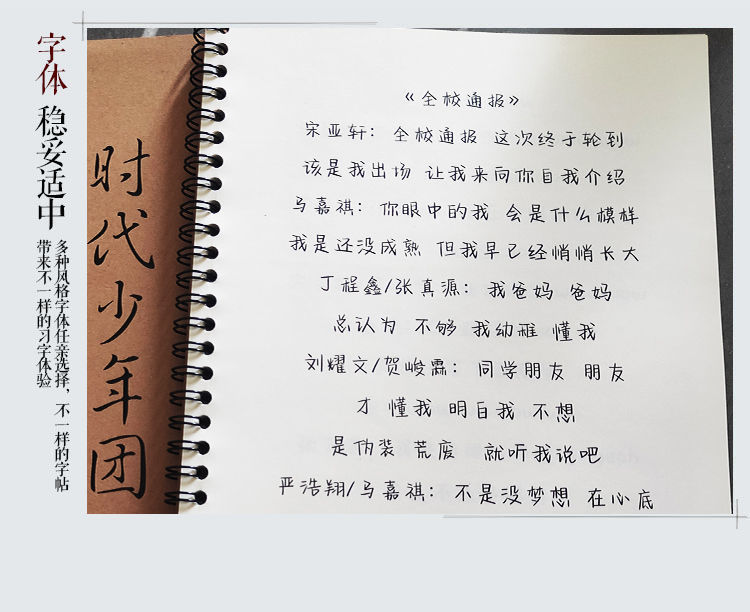 字体
稳妥适中
多种风格字体任亲选择，不一样的字帖
带来不一样的习字体验
时代少年团
《全校通报》
宋亚轩：全校通报 这次终于轮到
该是我出场 让我来向你自我介绍
马嘉祺：你眼中的我 会是什么模样
我是还没成熟 但我早已经悄悄长大
丁程鑫/张真源：我爸妈 爸妈
总认为 不够 我幼稚 懂我
刘耀文/贺峻霖：同学朋友 朋友
才 懂我 明白我 不想
是伪装 荒废 就听我说吧
严浩翔/马嘉祺：不是没梦想 在心底